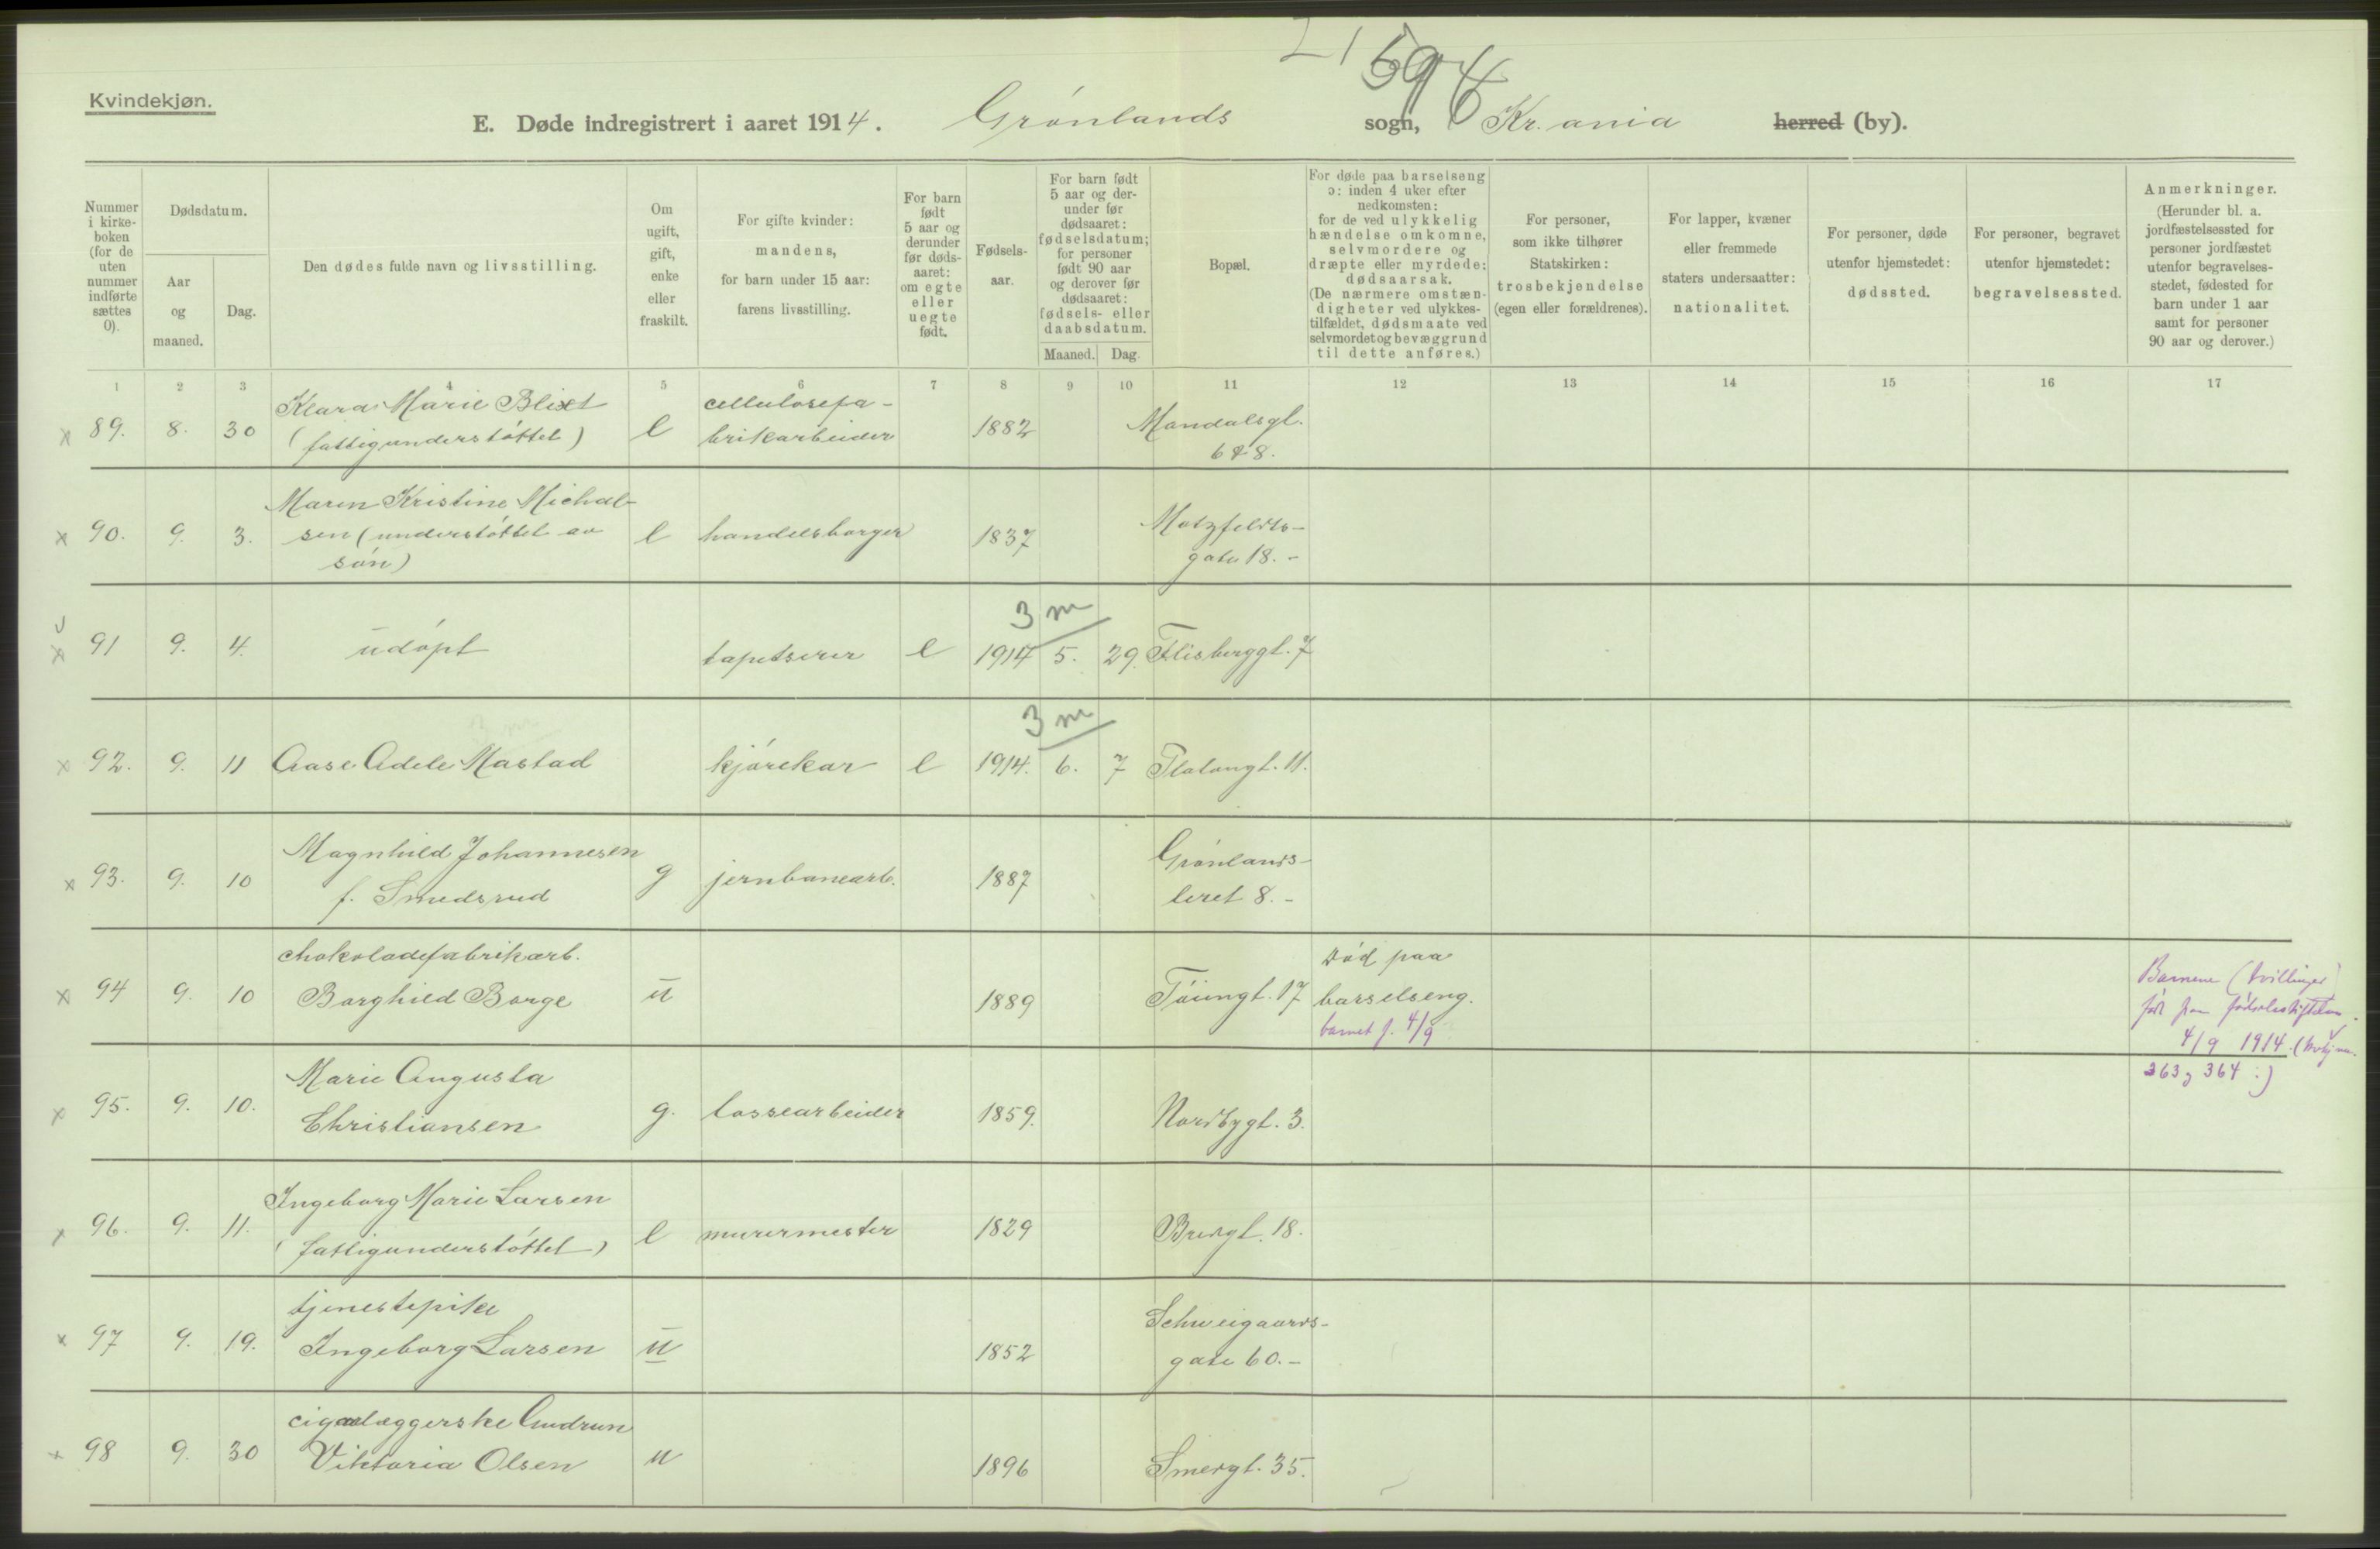 Kvindekjøn.
594
E. Døde indregistrert i aaret 1914. Grønlands sogn, Kr.ania herred (by).
Nummer i kirkeboken (for de uten nummer indførte sættes 0).
Dødsdatum.
Aar og maaned.
Dag.
Den dødes fulde navn og livsstilling.
Om ugift, gift, enke eller fraskilt.
For gifte kvinder: mandens, for barn under 15 aar: farens livsstilling.
For barn født 5 aar og derunder før dødsaaret: om egte eller uegte født.
Fødselsaar.
For barn født 5 aar og derunder før dødsaaret: fødselsdatum; for personer født 90 aar og derover før dødsaaret: fødsels- eller daabsdatum.
Maaned. Dag.
Bopæl.
For døde paa barselseng ɔ: inden 4 uker efter nedkomsten: for de ved ulykkelig hændelse omkomne, selvmordere og dræpte eller myrdede: dødsaarsak. (De nærmere omstændigheter ved ulykkestilfældet, dødsmaate ved selvmordet og bevæggrund til dette anføres.)
For personer, som ikke tilhører Statskirken: trosbekjendelse (egen eller forældrenes).
For lapper, kvæner eller fremmede staters undersaatter: nationalitet.
For personer, døde utenfor hjemstedet: dødssted.
For personer, begravet utenfor hjemstedet: begravelsessted.
Anmerkninger. (Herunder bl. a. jordfæstelsessted for personer jordfæstet utenfor begravelsesstedet, fødested for barn under 1 aar samt for personer 90 aar og derover.)
1 2 3 4 5 6 7 8 9 10 11 12 13 14 15 16 17
x 89. 8. 30 Klara Marie Blixt (fattigunderstøttet) e cellulosefabrikarbeider 1882 Mandalsgt. 6&8.
x 90. 9. 3. Maren Kristine Michalsen (understøttet av søn) e handelsborger 1837 Motzfeldtsgate 18. -
x 91 9. 4. udøpt tapetserer e 1914 5. 29. Flisberggt. 7
3 m
x 92. 9. 11 Aase Adele Mastad kjørekar e 1914. 6. 7 Platougt. 11.
3 m
x 93. 9. 10 Magnhild Johannesen f. Smedsrud g jernbanearb. 1887 Grønlandsleret 8. -
x 94 9. 10 chokoladefabrikarb. Borghild Borge u 1889 Tøiengt. 17 død paa barselseng. barnet f. 4/9
Barnene (tvillinger) født paa fødselsstiftelsen 4/9 1914.
363 364 :)
x 95. 9. 10. Marie Augusta Christiansen g. lossearbeider 1859. Nordbygt. 3.
x 96. 9. 11. Ingeborg Marie Larsen (fattigunderstøttet) e murermester 1829 Bredgt. 18.
x 97 9. 19. tjenestepike Ingeborg Larsen u 1852 Schweigaardsgate 60. -
x 98 9. 30 cigarlæggerske Gudrun Viktoria Olsen u 1896 Smedgt. 35.